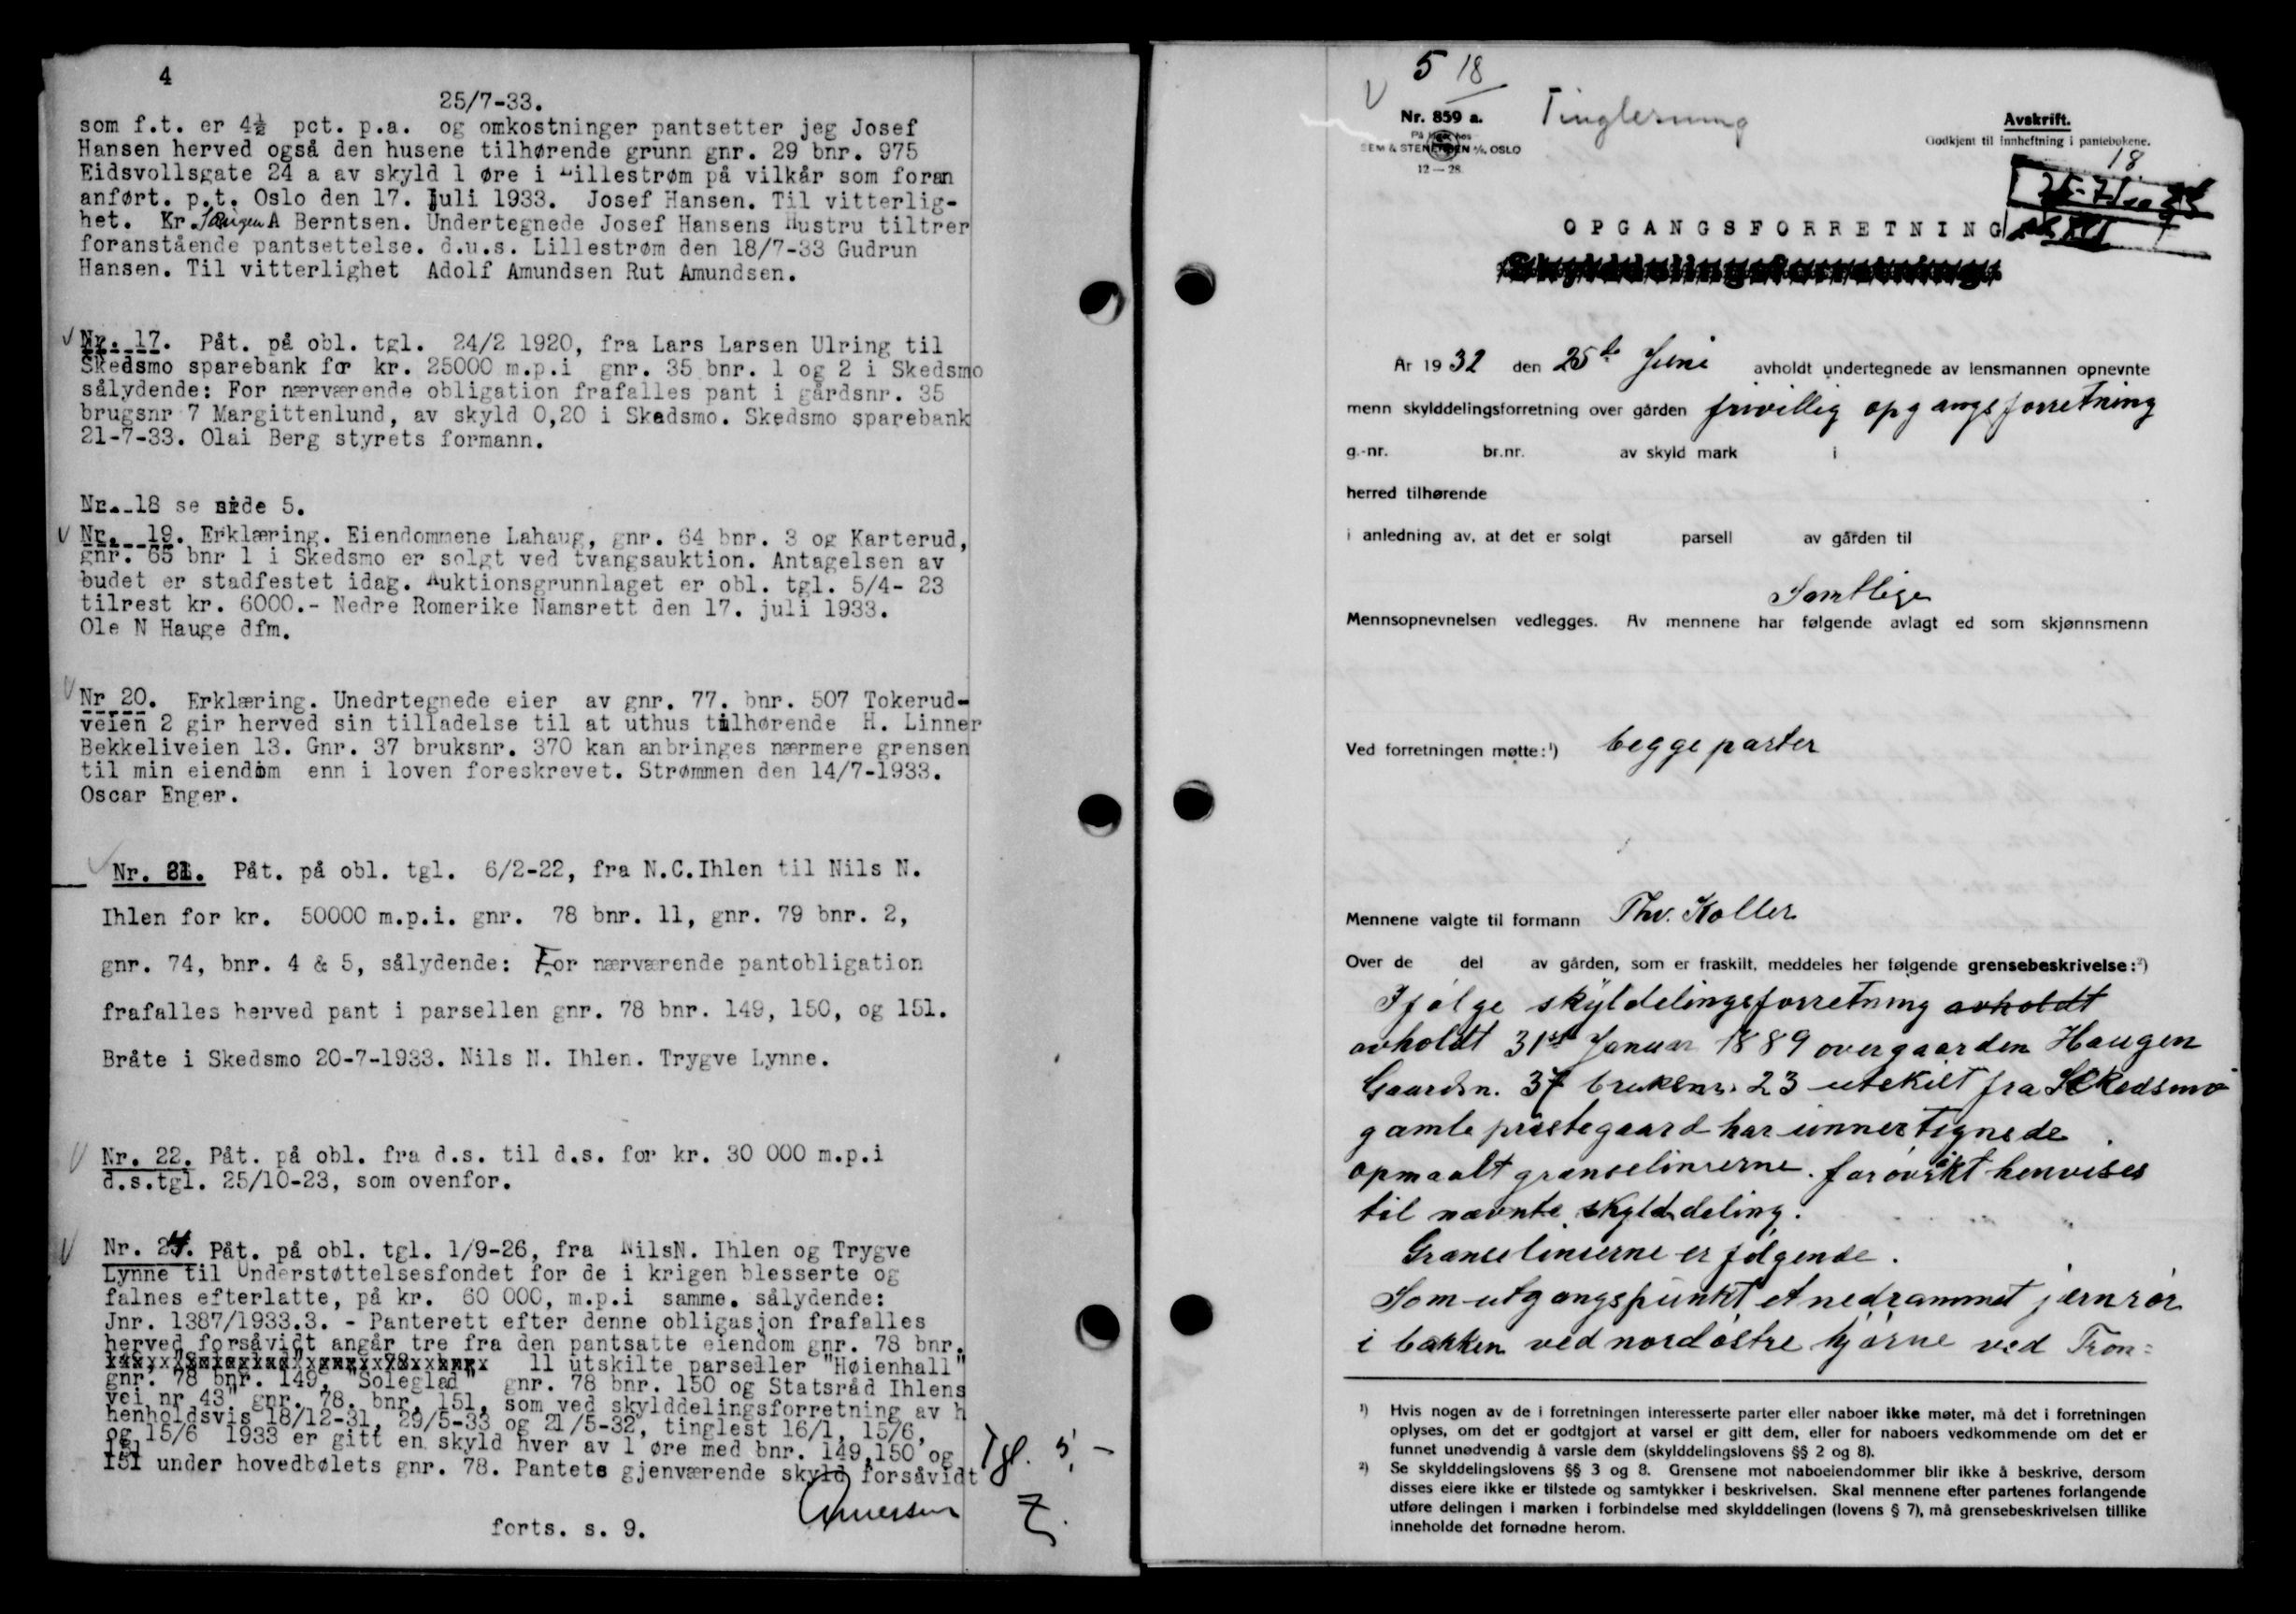 4
25/7-33.
som f.t. er 4½ pct. p.a. og omkostninger pantsetter jeg Josef
Hansen herved også den husene tilhørende grunn gnr. 29 bnr. 975
Eidsvollsgate 24 a av skyld 1 øre i Lillestrøm på vilkår som foran
anført. p.t. Oslo den 17. Juli 1933. Josef Hansen. Til vitterlig-
het. Kr. A Berntsen. Undertegnede Josef Hansens Hustru tiltrer
foranstående pantsettelse. d.u.s. Lillestrøm den 18/7-33 Gudrun
Hansen. Til vitterlighet Adolf Amundsen Rut Amundsen.
Nr. 17. Påt. på obl. tgl. 24/2 1920, fra Lars Larsen Ulring til
Skedsmo sparebank for kr. 25000 m.p.i gnr. 35 bnr. 1 og 2 i Skedsmo
sålydende: For nærværende obligation frafalles pant i gårdsnr. 35
brugsnr 7 Margittenlund, av skyld 0,20 i Skedsmo. Skedsmo sparebank
21-7-33. Olai Berg styrets formann.
Nr. 18 se side 5.
Nr. 19. Erklæring. Eiendommene Lahaug, gnr. 64 bnr. 3 og Karterud,
gnr. 65 bnr 1 i Skedsmo er solgt ved tvangsauktion. Antagelsen av
budet er stadfestet idag. Auktionsgrunnlaget er obl. tgl. 5/4- 23
tilrest kr. 6000.- Nedre Romerike Namsrett den 17. juli 1933.
Ole N Hauge dfm.
Nr 20. Erklæring. Unedrtegnede eier av gnr. 77. bnr. 507 Tokerud-
veien 2 gir herved sin tilladelse til at uthus tilhørende H. Linner
Bekkeliveien 13. Gnr. 37 bruksnr. 370 kan anbringes nærmere grensen
til min eiendom enn i loven foreskrevet. Strømmen den 14/7-1933.
Oscar Enger.
Nr. 21. Påt. på obl. tgl. 6/2-22, fra N.C.Ihlen til Nils N.
Ihlen for kr. 50000 m.p.i. gnr. 78 bnr. 11, gnr. 79 bnr. 2,
gnr. 74, bnr. 4 & 5, sålydende: For nærværende pantobligation
frafalles herved pant i parsellen gnr. 78 bnr. 149, 150, og 151.
Bråte i Skedsmo 20-7-1933. Nils N. Ihlen. Trygve Lynne.
Nr. 22. Påt. på obl. fra d.s. til d.s. for kr. 30 000 m.p.i
d.s.tgl. 25/10-23, som ovenfor.
Nr. 24. Påt. på obl. tgl. 1/9-26, fra NilsN. Ihlen og Trygve
Lynne til Understøttelsesfondet for de i krigen blesserte og
falnes efterlatte, på kr. 60 000, m.p.i samme. sålydende:
Jnr. 1387/1933.3. - Panterett efter denne obligasjon frafalles
herved forsåvidt angår tre fra den pantsatte eiendom gnr. 78 bnr.
11 utskilte parseller "Høienhall"
gnr. 78 bnr. 149, "Soleglad" gnr. 78 bnr. 150 og Statsråd Ihlens
vei nr 43" gnr. 78. bnr. 151, som ved skylddelingsforretning av h
henholdsvis 18/12-31, 29/5-33 og 21/5-32, tinglest 16/1, 15/6,
og 15/6 1933 er gitt en skyld hver av 1 øre med bnr. 149,150 og
151
151 under hovedbølets gnr. 78. Pantets gjenværende skyld forsåvidt
Tgl. 5,-
forts. s. 9.
5 18
Nr. 859 a.
På lager hos
SEM & STENERSEN A/S, OSLO
12 — 28.
Tinglesning
Avskrift.
Godkjent til innheftning i pantebøkene.
18
OPGANGSFORRETNING
Skylddelingsforretning.
År 1932 den 25de Juni avholdt undertegnede av lensmannen opnevnte
menn skylddelingsforretning over gården frivillig opgangsforretning
g.-nr. br.nr. av skyld mark i
herred tilhørende
i anledning av, at det er solgt parsell av gården til
Samtlige
Mennsopnevnelsen vedlegges. Av mennene har følgende avlagt ed som skjønnsmenn
Ved forretningen møtte:¹) begge parter
Mennene valgte til formann Thv. Koller
Over de del av gården, som er fraskilt, meddeles her følgende grensebeskrivelse:²)
Ifølge skyldelingsforretning avholdt
avholdt 31te Januar 1889 over gaarden Haugen
Gaardsn. 37 bruksnr. 23 utskilt fra Skedsmo
gamle prestegaard har unnertegnede
opmaalt grænselinierne. forøvrikt henvises
til nævnte skylddeling.
Grænselinierne er følgende.
Som utgangspunkt et nedrammet jernrør
i bakken ved nordøstre hjørne ved Tron=
¹) Hvis nogen av de i forretningen interesserte parter eller naboer ikke møter, må det i forretningen
oplyses, om det er godtgjort at varsel er gitt dem, eller for naboers vedkommende om det er
funnet unødvendig å varsle dem (skylddelingslovens §§ 2 og 8).
²) Se skylddelingslovens §§ 3 og 8. Grensene mot naboeiendommer blir ikke å beskrive, dersom
disses eiere ikke er tilstede og samtykker i beskrivelsen. Skal mennene efter partenes forlangende
utføre delingen i marken i forbindelse med skylddelingen (lovens § 7), må grensebeskrivelsen tillike
inneholde det fornødne herom.